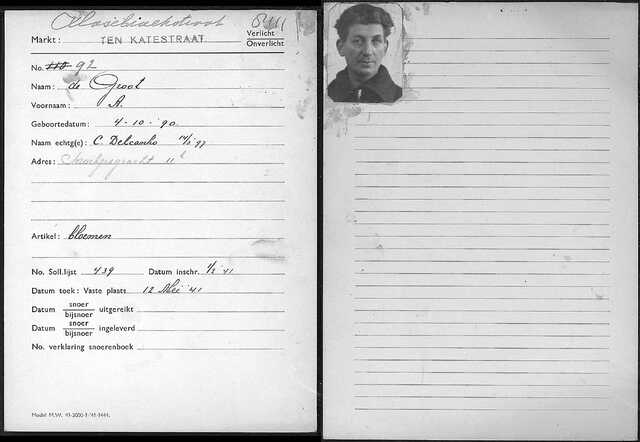 Markt: TEN KATESTRAAT Verlicht
Onverlicht
No. 110 92
Naam: de Groot
Voornaam: A.
Geboortedatum: 4-10-'90
Naam echtg(e): C. Delcanho 14/8 '97
Adres: 11
Artikel: bloemen
No. Soll.lijst 439 Datum inschr. 1/2 '41
Datum toek: Vaste plaats 12 Mei '41
Datum snoer/bijsnoer uitgereikt
Datum snoer/bijsnoer ingeleverd
No. verklaring snoerenboek